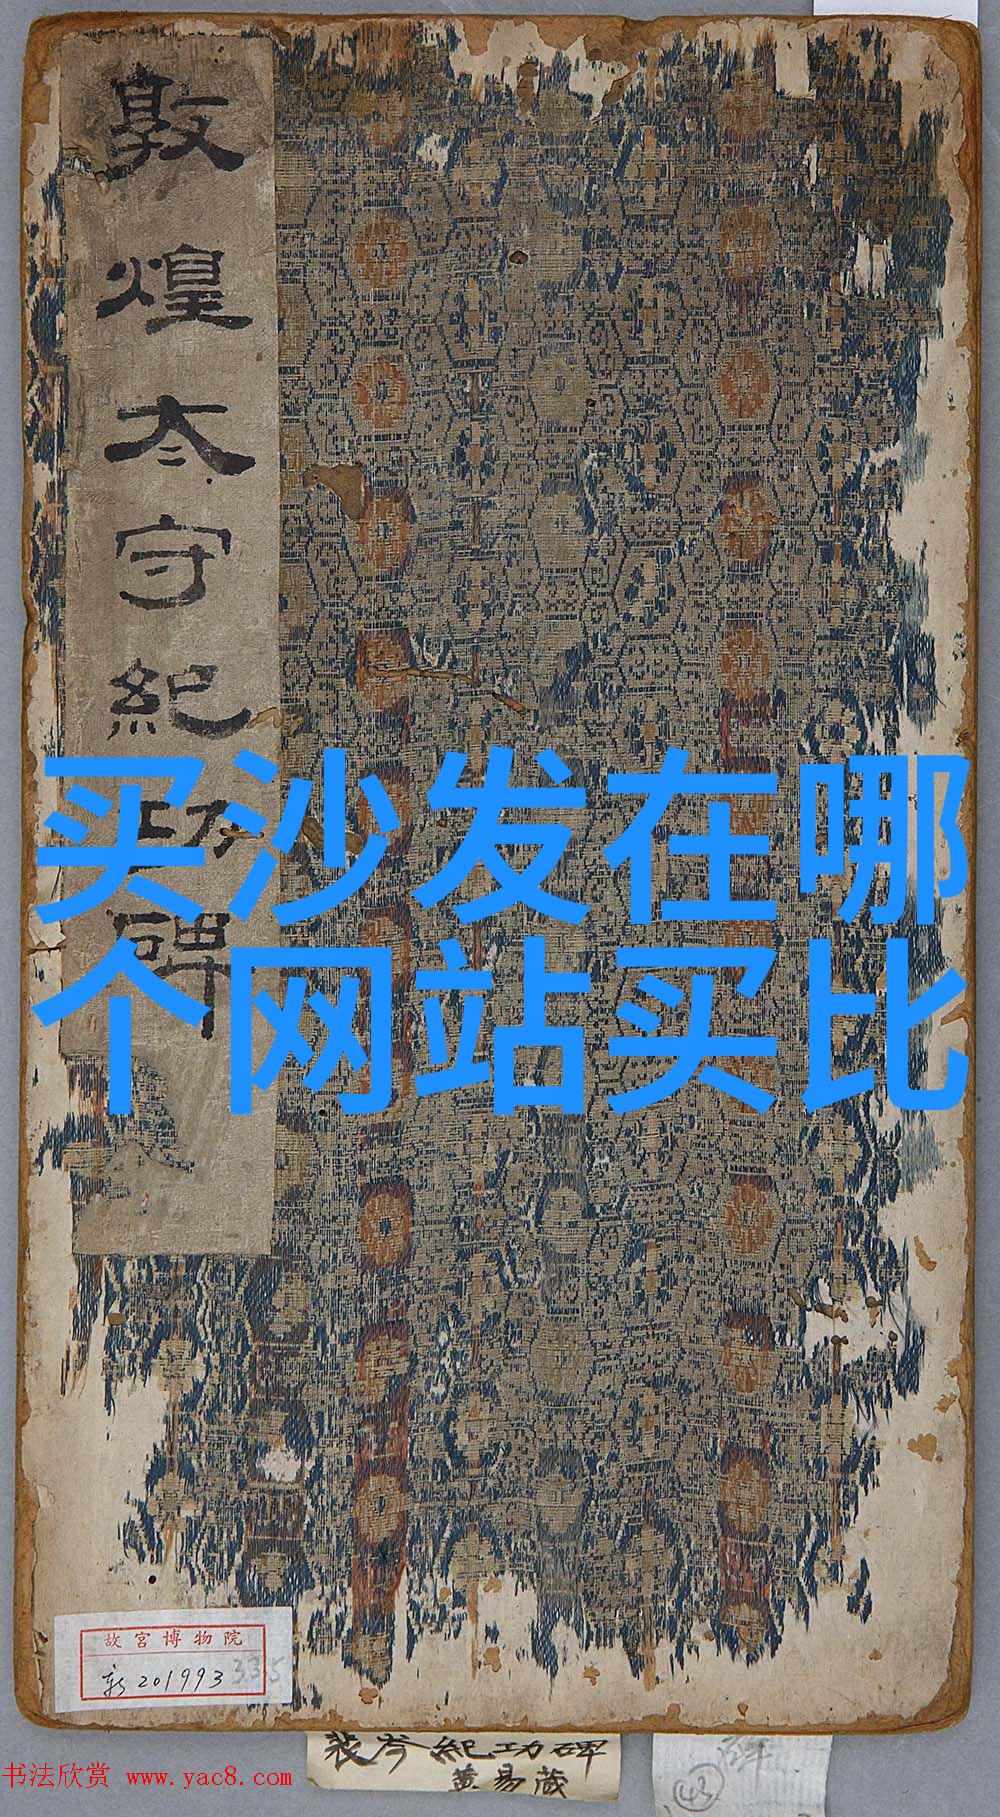 敦煌太守紀功碑
买沙发在哪
个网站买比
故宫博物院
新201993
335
裴岑紀功碑
黄易藏
43
书法欣赏 www.yac8.com